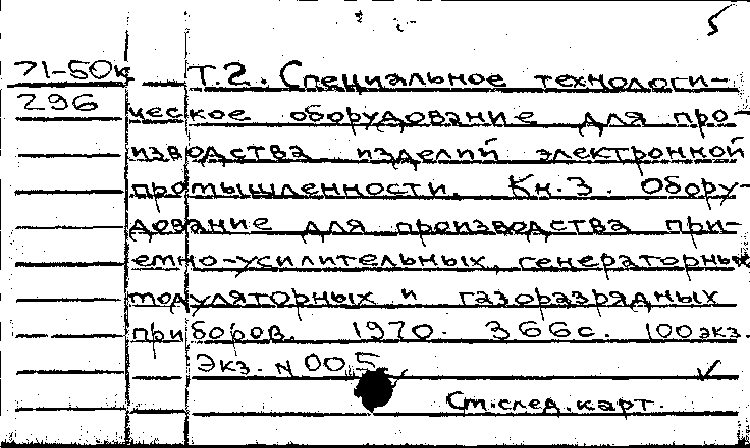 5
71-50к Т.2. Специальное технологи-
296 ческое оборудование для про-
изводства изделий электронной
промышленности. Кн.3. Обору-
дование для производства при-
емно-усилительных, генераторных
модуляторных и газоразрядных
приборов. 1970. 366с. 100экз.
Экз. N 005
См.след.карт.